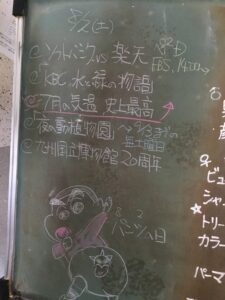 8/2(土)
ソフトバンク vs 楽天
FBS, 14:00~
「KBC, 水と緑の物語」
7月の気温 史上最高
「夜の動植物園」~ 8/3までの
毎土曜日
九州国立博物館 20周年
8 2
パンツの日
パーマ
カラー